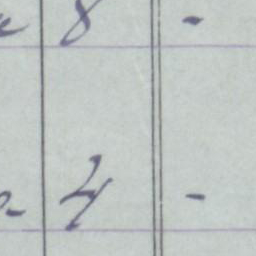 8 -
4 -